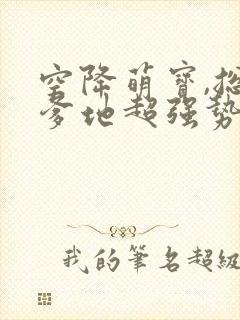 空降萌寶,總
爹地超强勢
我的筆名超級